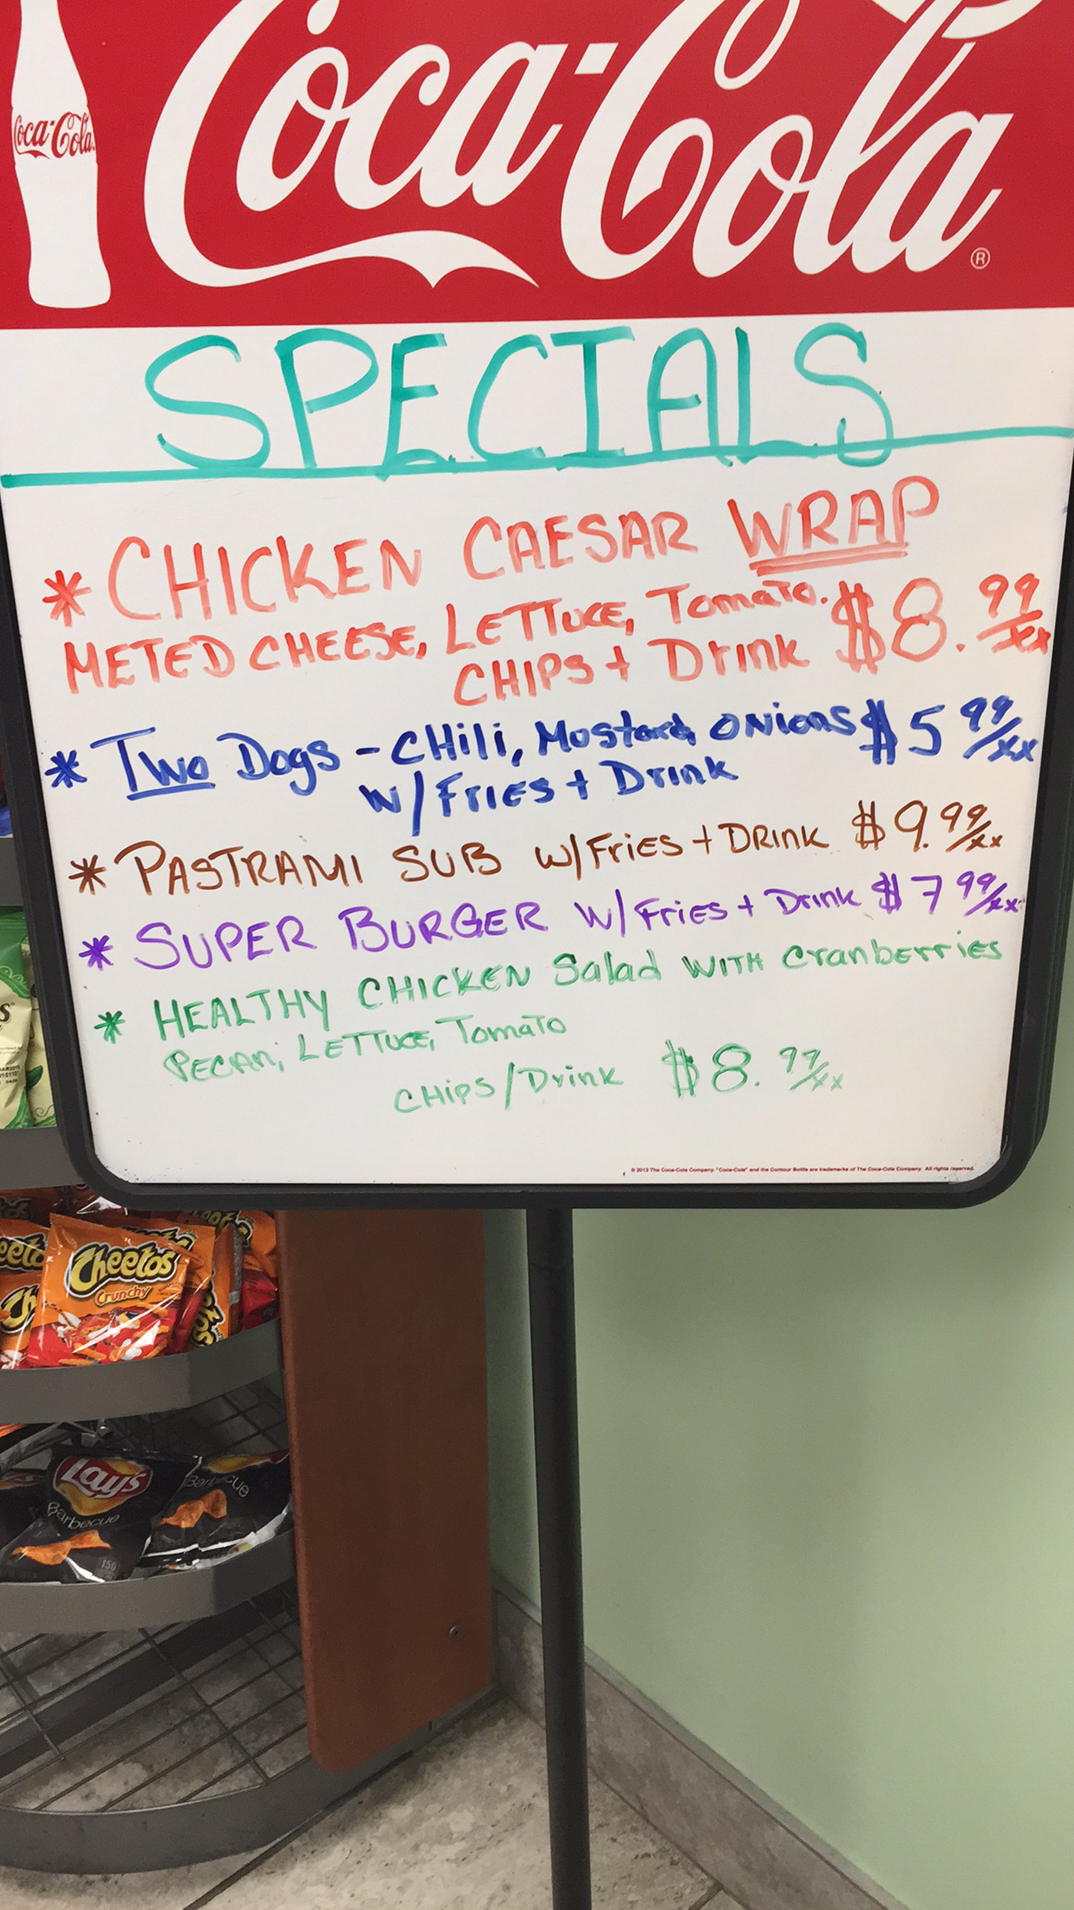 Coca-Cola
Coca-Cola®
SPECIALS
* CHICKEN CAESAR WRAP
METED CHEESE, LETTUCE, TOMATO. $8.99/xx
CHIPS + Drink
* Two Dogs - CHili, Mustard, ONions $5 99/xx
W/FRIES + Drink
* PASTRAMI SUB W/FriES + DRINK $9.99/xx
* SUPER BURGER W/Fries + Drink $7 99/xx
* HEALTHY CHICKEN Salad WITH CranbErriES
PECAN, LETTUCE, TOMATO
CHIPS/Drink $8.99/xx
© 2013 The Coca-Cola Company. "Coca-Cola" and the Contour Bottle are trademarks of The Coca-Cola Company. All rights reserved.
Cheetos
Crunchy
Lay's
Barbecue
Barbecue